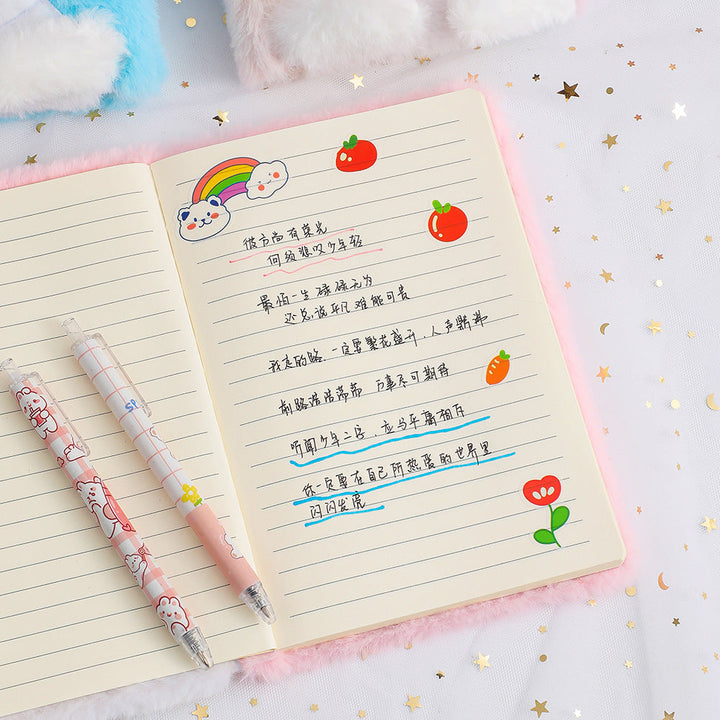 彼方尚有荣光
何须悲叹少年轻
最怕一生碌碌无为
还总说平凡难能可贵
我走的路,一定要繁花盛开,人声鼎沸
前路浩浩荡荡 万事尽可期待
听闻少年二字,应与平庸相斥
你一定要在自己所热爱的世界里
闪闪发亮